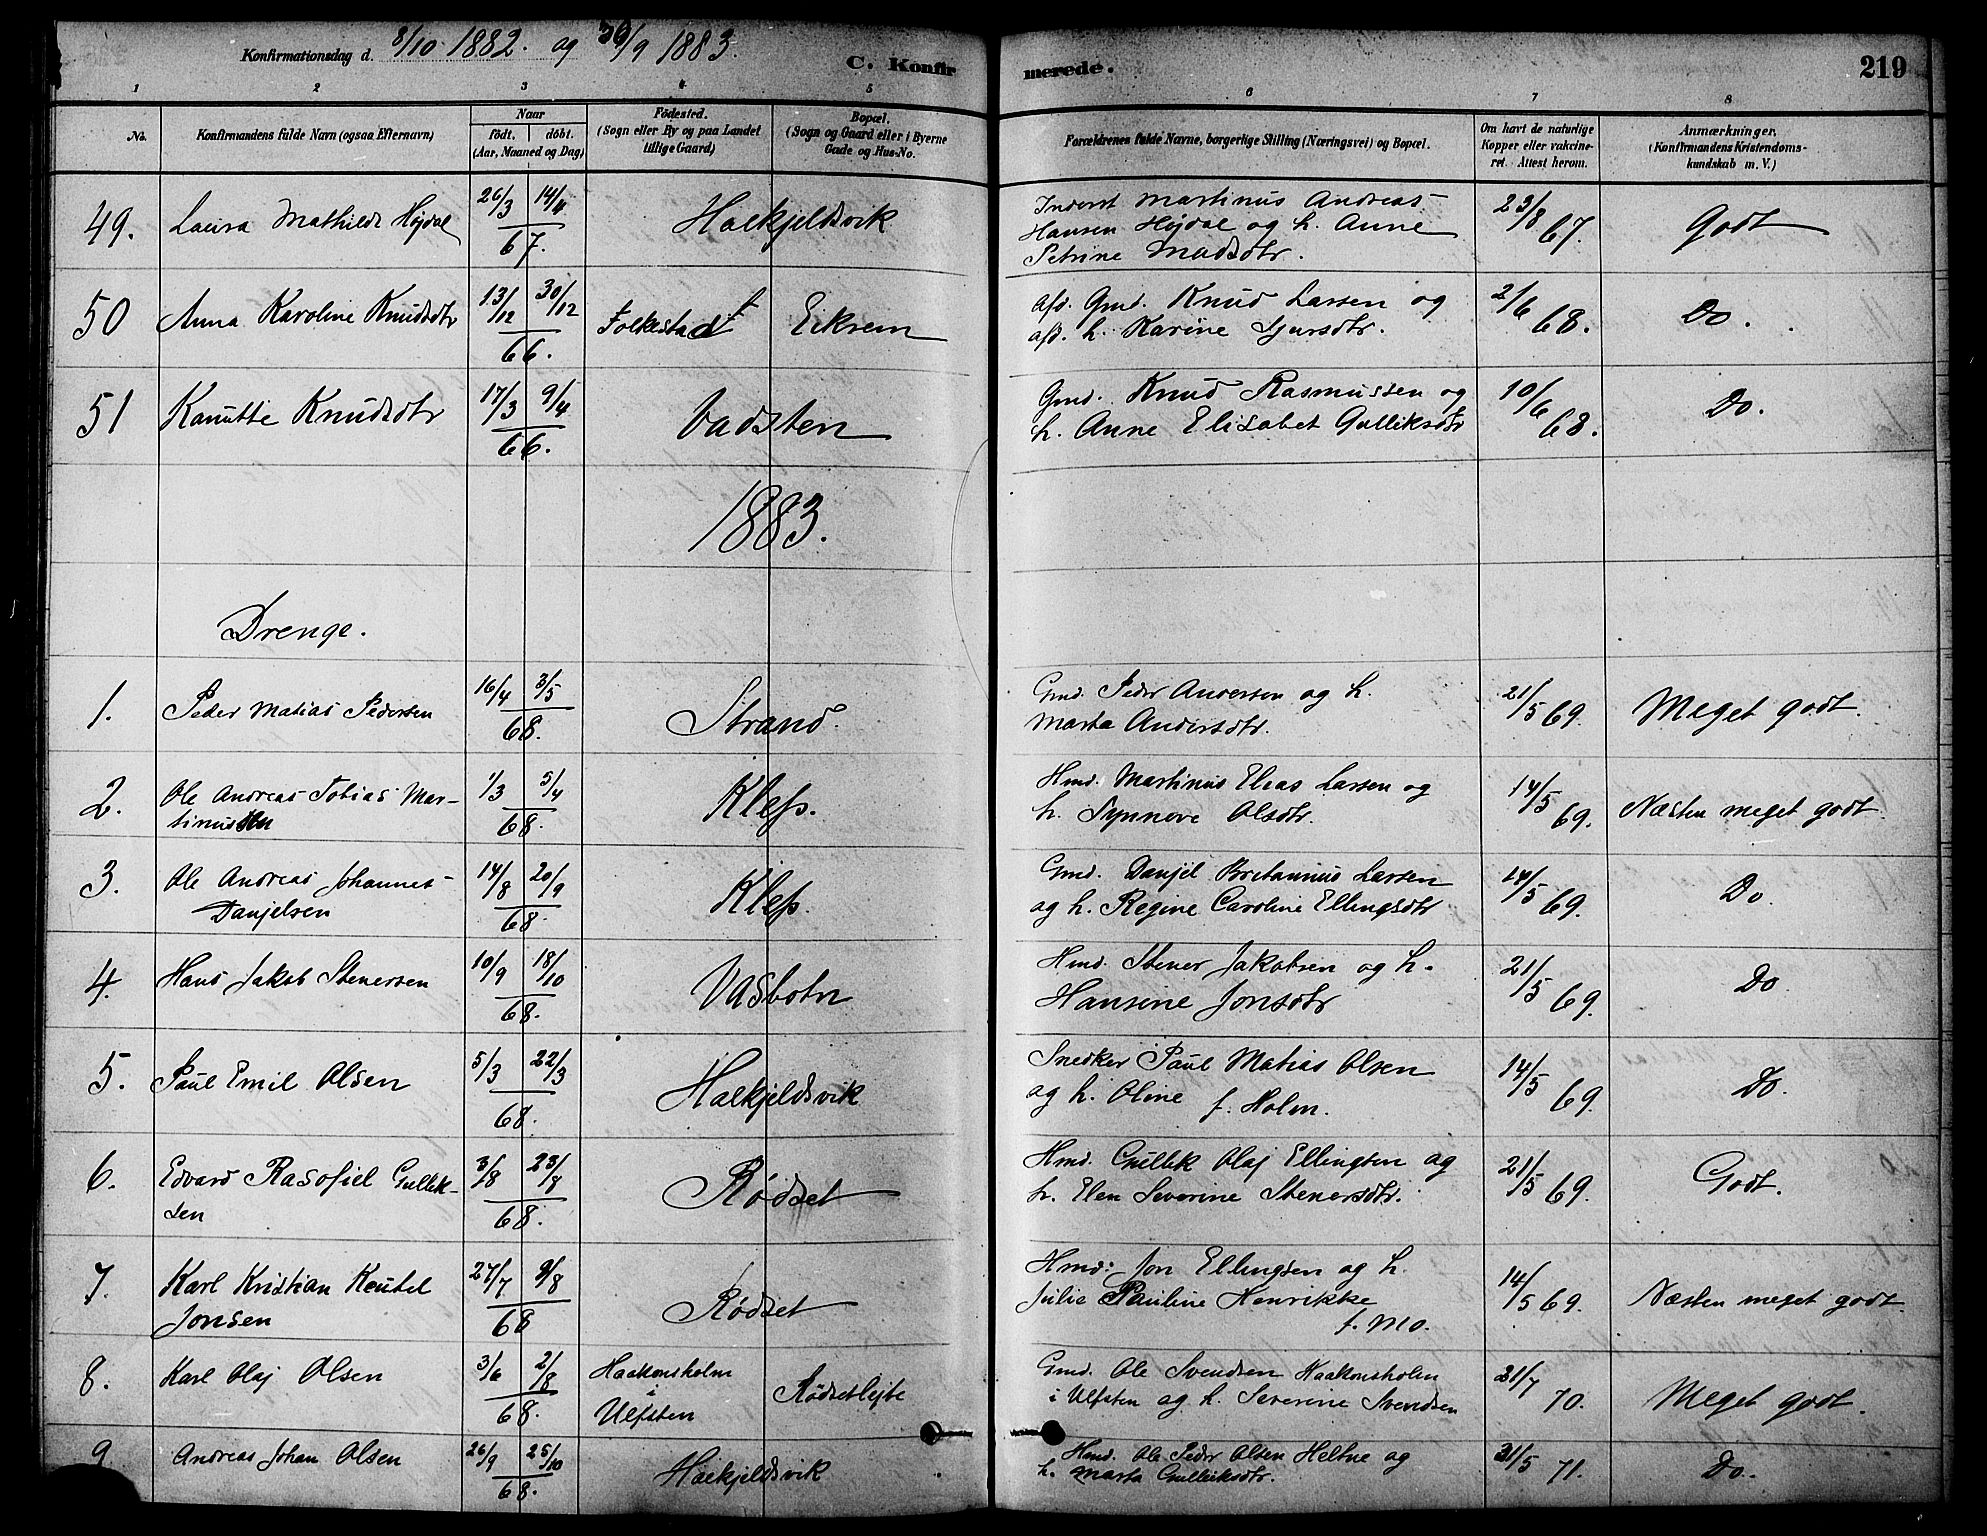 Konfirmationsdag d. 8/10 1882. og 30/9 1883.
C. Konfirmerede.
219
1 2 3 4 5 6 7 8
No.
Konfirmandens fulde Navn (ogsaa Efternavn)
Naar
födt. döbt.
(Aar, Maaned og Dag)
Födested.
(Sogn eller By og paa Landet
tillige Gaard)
Bopæl.
(Sogn og Gaard eller i Byerne
Gade og Hus-No.
Forældrenes fulde Navne, borgerlige Stilling (Næringsvei) og Bopæl.
Om havt de naturlige
Kopper eller vakcine-
ret. Attest herom.
Anmærkninger.
(Konfirmandens Kristendoms-
kundskab m. V.)
49. Laura Mathilde Højdal 26/3 14/4 67. Halkjeldsvik
Inderst Martinus Andreas
Hansen Højdal og h. Anne
Petrine Madsdtr.
23/8 67. Godt
50 Anna Karoline Knudsdtr 13/12 30/12 66. Folkestad Eikrem
afd. Gmd. Knud Larsen og
afd. h. Karine Sjursdtr.
2/6 68. Do.
51 Kanutte Knudsdtr 17/3 9/4 66. Vadsten
Gmd. Knud Rasmussen og
h. Anne Elisabet Gulliksdtr
10/6 68. Do.
1883.
Drenge.
1. Peder Matias Pedersen 16/4 3/5 68. Strand.
Gmd. Peder Andersen og h.
Marta Andersdtr.
21/5 69. Meget godt.
2. Ole Andreas Tobias Mar-
tinussen 1/3 5/4 68. Klep.
Hmd. Martinus Elias Larsen og
h. Synnøve Olsdtr.
14/5 69. Næsten meget godt
3. Ole Andreas Johannes
Danjelsen 14/8 20/9 68. Klep.
Gmd. Danjel Britannius Larsen
og h. Regine Caroline Ellingsdtr
14/5 69. Do
4. Hans Jakob Stenersen 10/9 18/10 68. Vasbotn
Hmd. Stener Jakobsen og h.
Hansine Jonsdtr
21/5 69. Do
5. Paul Emil Olsen 5/3 22/3 68. Halkjeldsvik
Snedker Paul Matias Olsen
og h. Oline f. Holm.
14/5 69. Do.
6. Edvard Rasofiel Gullik-
sen 3/8 23/8 68. Rødset
Hmd. Gullik Olaj Ellingsen og
h. Elen Severine Stenersdtr.
21/5 69. Godt.
7. Karl Kristian Knutel
Jonsen 27/7 9/8 68 Rødset
Hmd: Jon Ellingsen og h.
Julie Pauline Henrikke
f. Mo.
14/5 69. Næsten meget godt
8. Karl Olaj Olsen 3/6 2/8 68. Haakonsholm
i
Ulfsten Rødsetlejte
Gmd. Ole Svendsen Haakonsholm
i Ulfsten og h. Severine Svendsen
21/7 70. Meget godt.
9 Andreas Johan Olsen 26/9 25/10 68. Halkjeldsvik
Hmd. Ole Peder Olsen Heltne og
h. Marta Gulliksdtr.
31/5 71. Do.